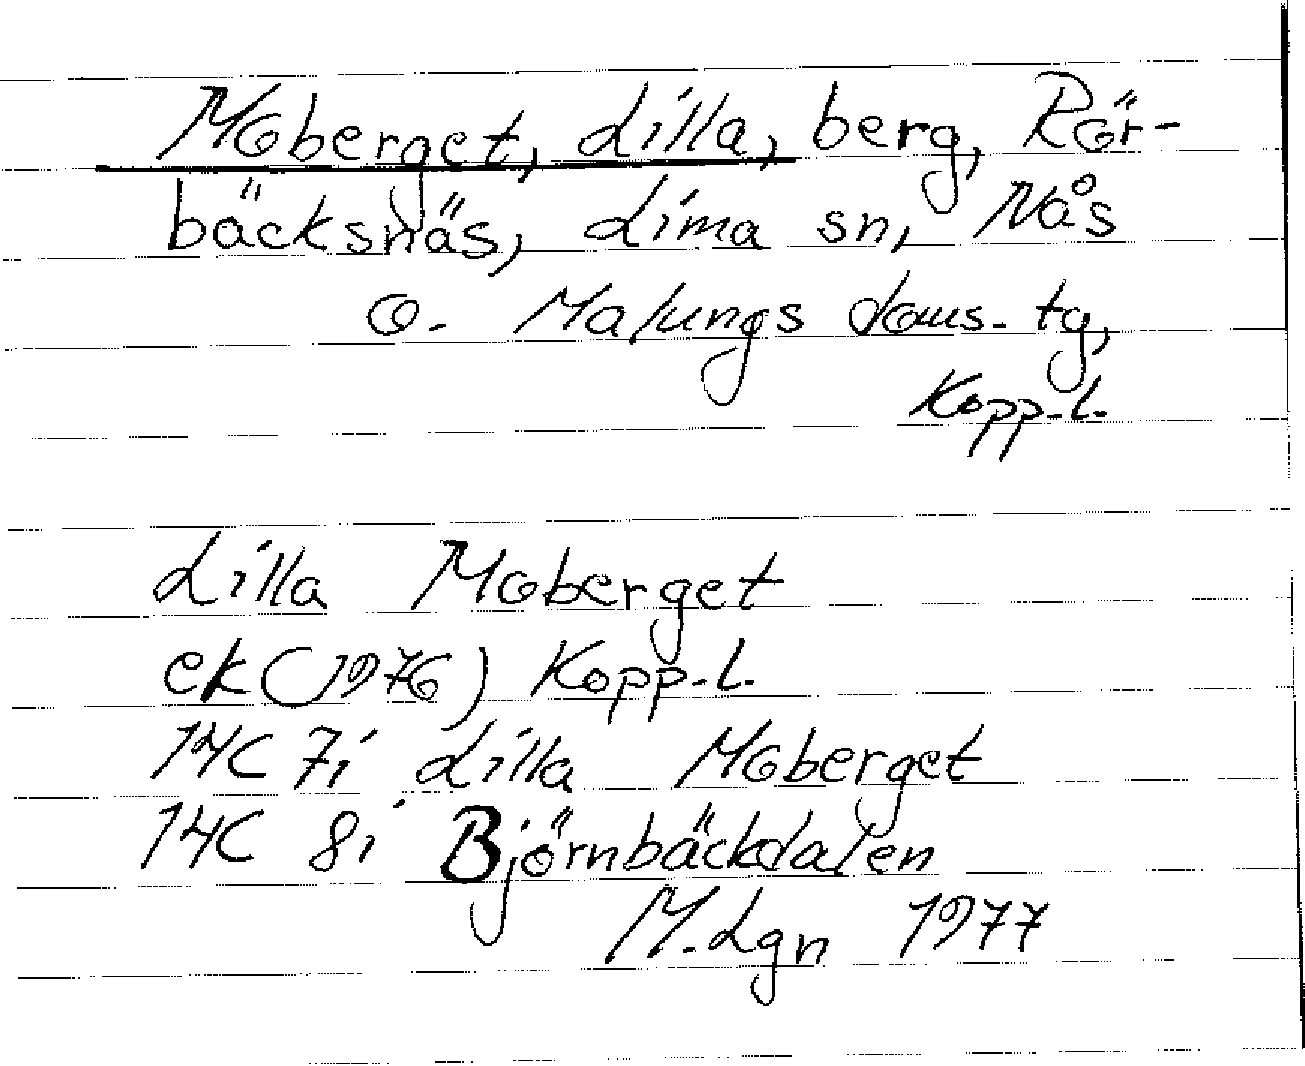 Moberget, Lilla, berg, Rör-
bäcksnäs, Lima sn, Nås
o. Malungs doms. tg,
Kopp. l.
Lilla Moberget
ek (1976) Kopp. l.
14C 7i Lilla Moberget
14C 8i Björnbäckdalen
M. Lgn 1977